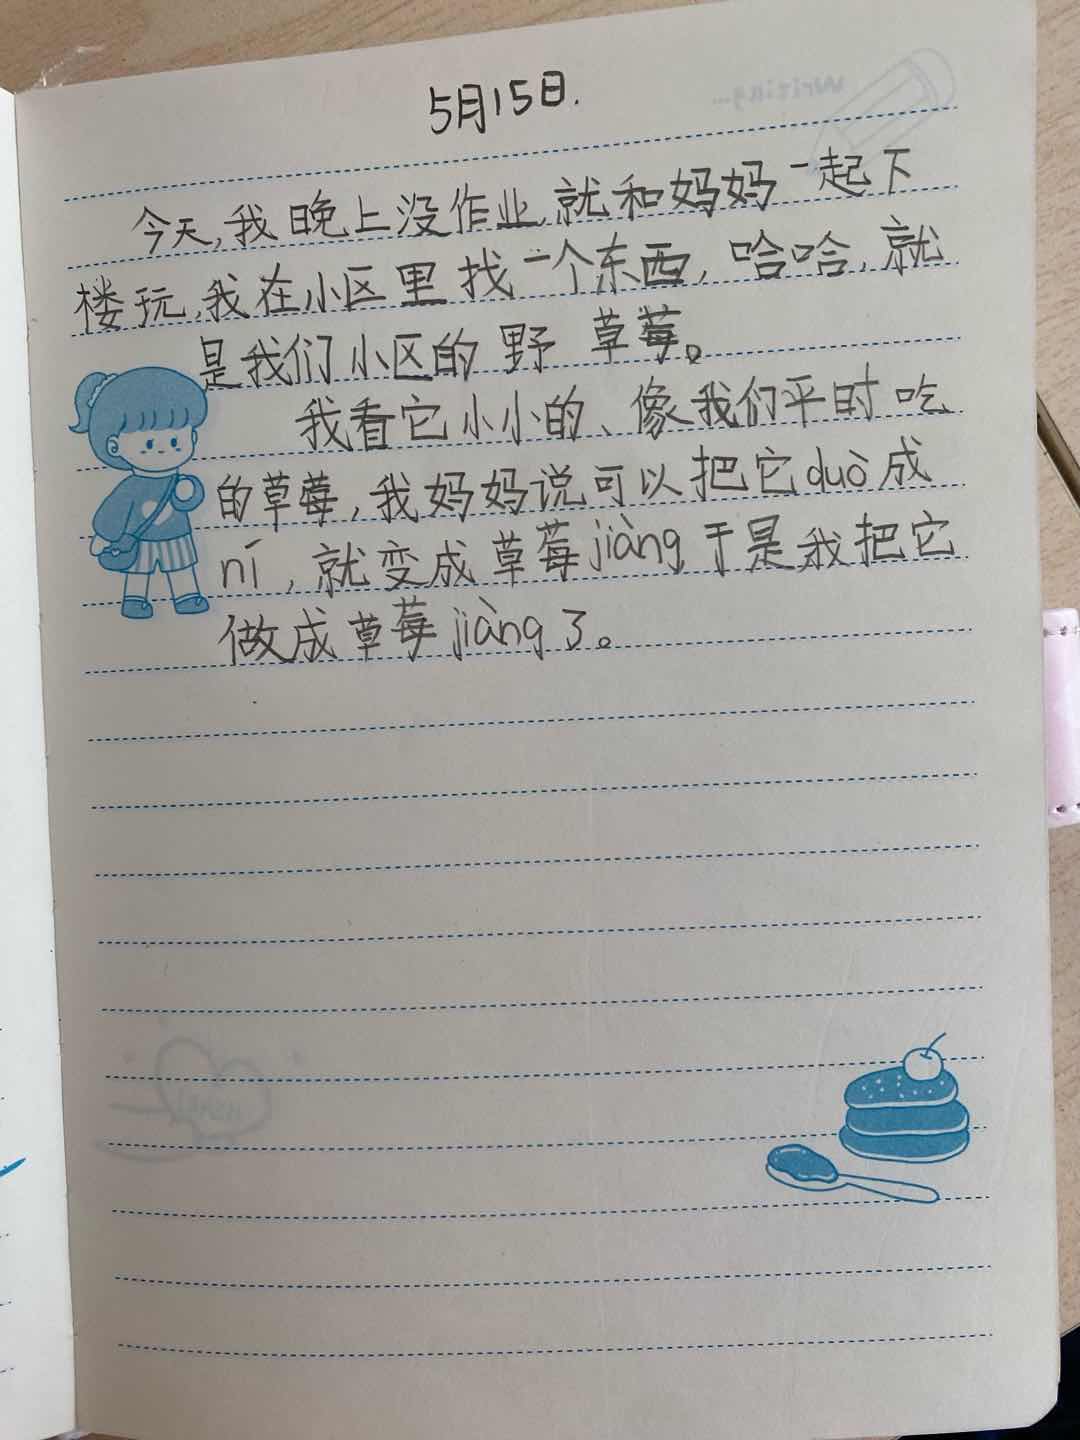 5月15日.
今天,我晚上没作业,就和妈妈一起下
楼玩,我在小区里找一个东西,哈哈,就
是我们小区的野草莓。
我看它小小的、像我们平时吃
的草莓,我妈妈说可以把它duò成
ní,就变成草莓jiàng于是我把它
做成草莓jiàng了。
Writing...